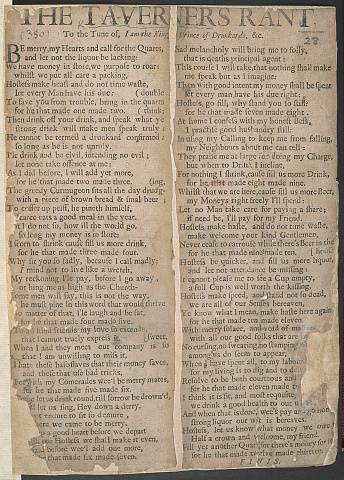 THE TAVERNERS RANT
(350) To the Tune of, I am the King, Prince of Drunkards, &c.
28
BE merry, my Hearts and call for the Quarts,
and let not the liquor be lacking:
We have money in store, we purpose to roar:
whilst we put all care a packing.
Hostess make haste and do not time waste,
let every Man have his due: (double
To save you from trouble, bring in the quarts
for he that made one made two. (think;
Then drink off your drink, and speak what ye
strong drink will make men speak truly:
He cannot be termed a drunkard confirmed
so long as he is not unruly.
I'le drink and be civil, intending no evil;
let none take offence at me:
As I did before, I will add yet more,
for he that made two made three. (ing,
The greedy Curmugeon sits all the day
with a piece of brown bread & small beer
To cover up pelf, he pincht himself,
cares not a good meal in the year.
I do not so, how if the world go.
so long my money is in store:
I scorn to shrink cause fill us more drink,
for he that made three made four.
Why sit you so sadly, because I call madly;
I mind not to live like a wretch,
My reckoning I'le pay, before I go away,
or hing me as high as the Church-
Some men will say, this is not the way,
he must pine in this word that would thrive
no matter of that, I'le laugh and be fat,
he that made four made five.
friends my love so extends,
that I cannot truly express it (sweet,
When I and they meet our company is so
that I am unwilling to miss it.
I hate these base slaves that their money saves,
and these that use bad tricks,
But with my Comerades wee'l be merry mates,
for he that made five made six.
let us drink round, till sorrow be drown'd
let us sing, Hey down a derry.
we come to be merry.
good heart before we depart
Hostess we shall make it even,
before wee'l add one more,
that made six made seven.
Sad melancholy will bring me to folly,
that is deaths principal agent:
This course I will take, that nothing shall make
me speak but as I imagine:
Then with good intent my money shall be spent
every man have his due right:
Hostess, go fill, why stand you so still
for he that made seven made eight:
At home I confess with my honest Bess,
I practise good husbandry still:
In using my Calling to keep me from falling,
my Neighbours about me can tell:
They praise me at large for doing my Charge,
but when to Drink I incline,
For nothing I shrink, cause fill us more Drink,
for he that made eight made nine.
Whilst that we are here, cause fill us more Beer,
my Moneys right freely I'le spend:
Let no Man take care for paying a share;
if need be, I'le pay for my Friend.
Hostess, make haste, and do not time waste,
make welcome your kind Gentlemen,
Never cease to carrouse while there's Beer in the
for he that made nine made ten, (house
Hostess be quicker, and fill us more liquor,
and let not attendance be missing:
I cannot please me to see a Cup empty,
a full Cup is well worth the kissing.
Hostess make speed, and stand not to dead,
we are all of our Senses bereaven,
Ye know what I mean, make haste here again
for he that made ten made eleven.
With merry solace, and void of
with all our good folks that are
No cursing, no swearing, no
amongst us do seem to appear,
When I have spent all, to my labour I
for my living is to dig and to
Resolve to be both courteous and
for he that made eleven made twelve
I think it is fit, and most requisite
we drink a good health to our
And when that is done, wee'l pay and
strong liquor our wit is bereaves.
Hostess, let us know what money we owe
Half a crown and welcome, my friend.
Fill yet another Quart for there's money for it
for he that made twelve made thirteen
FINIS.